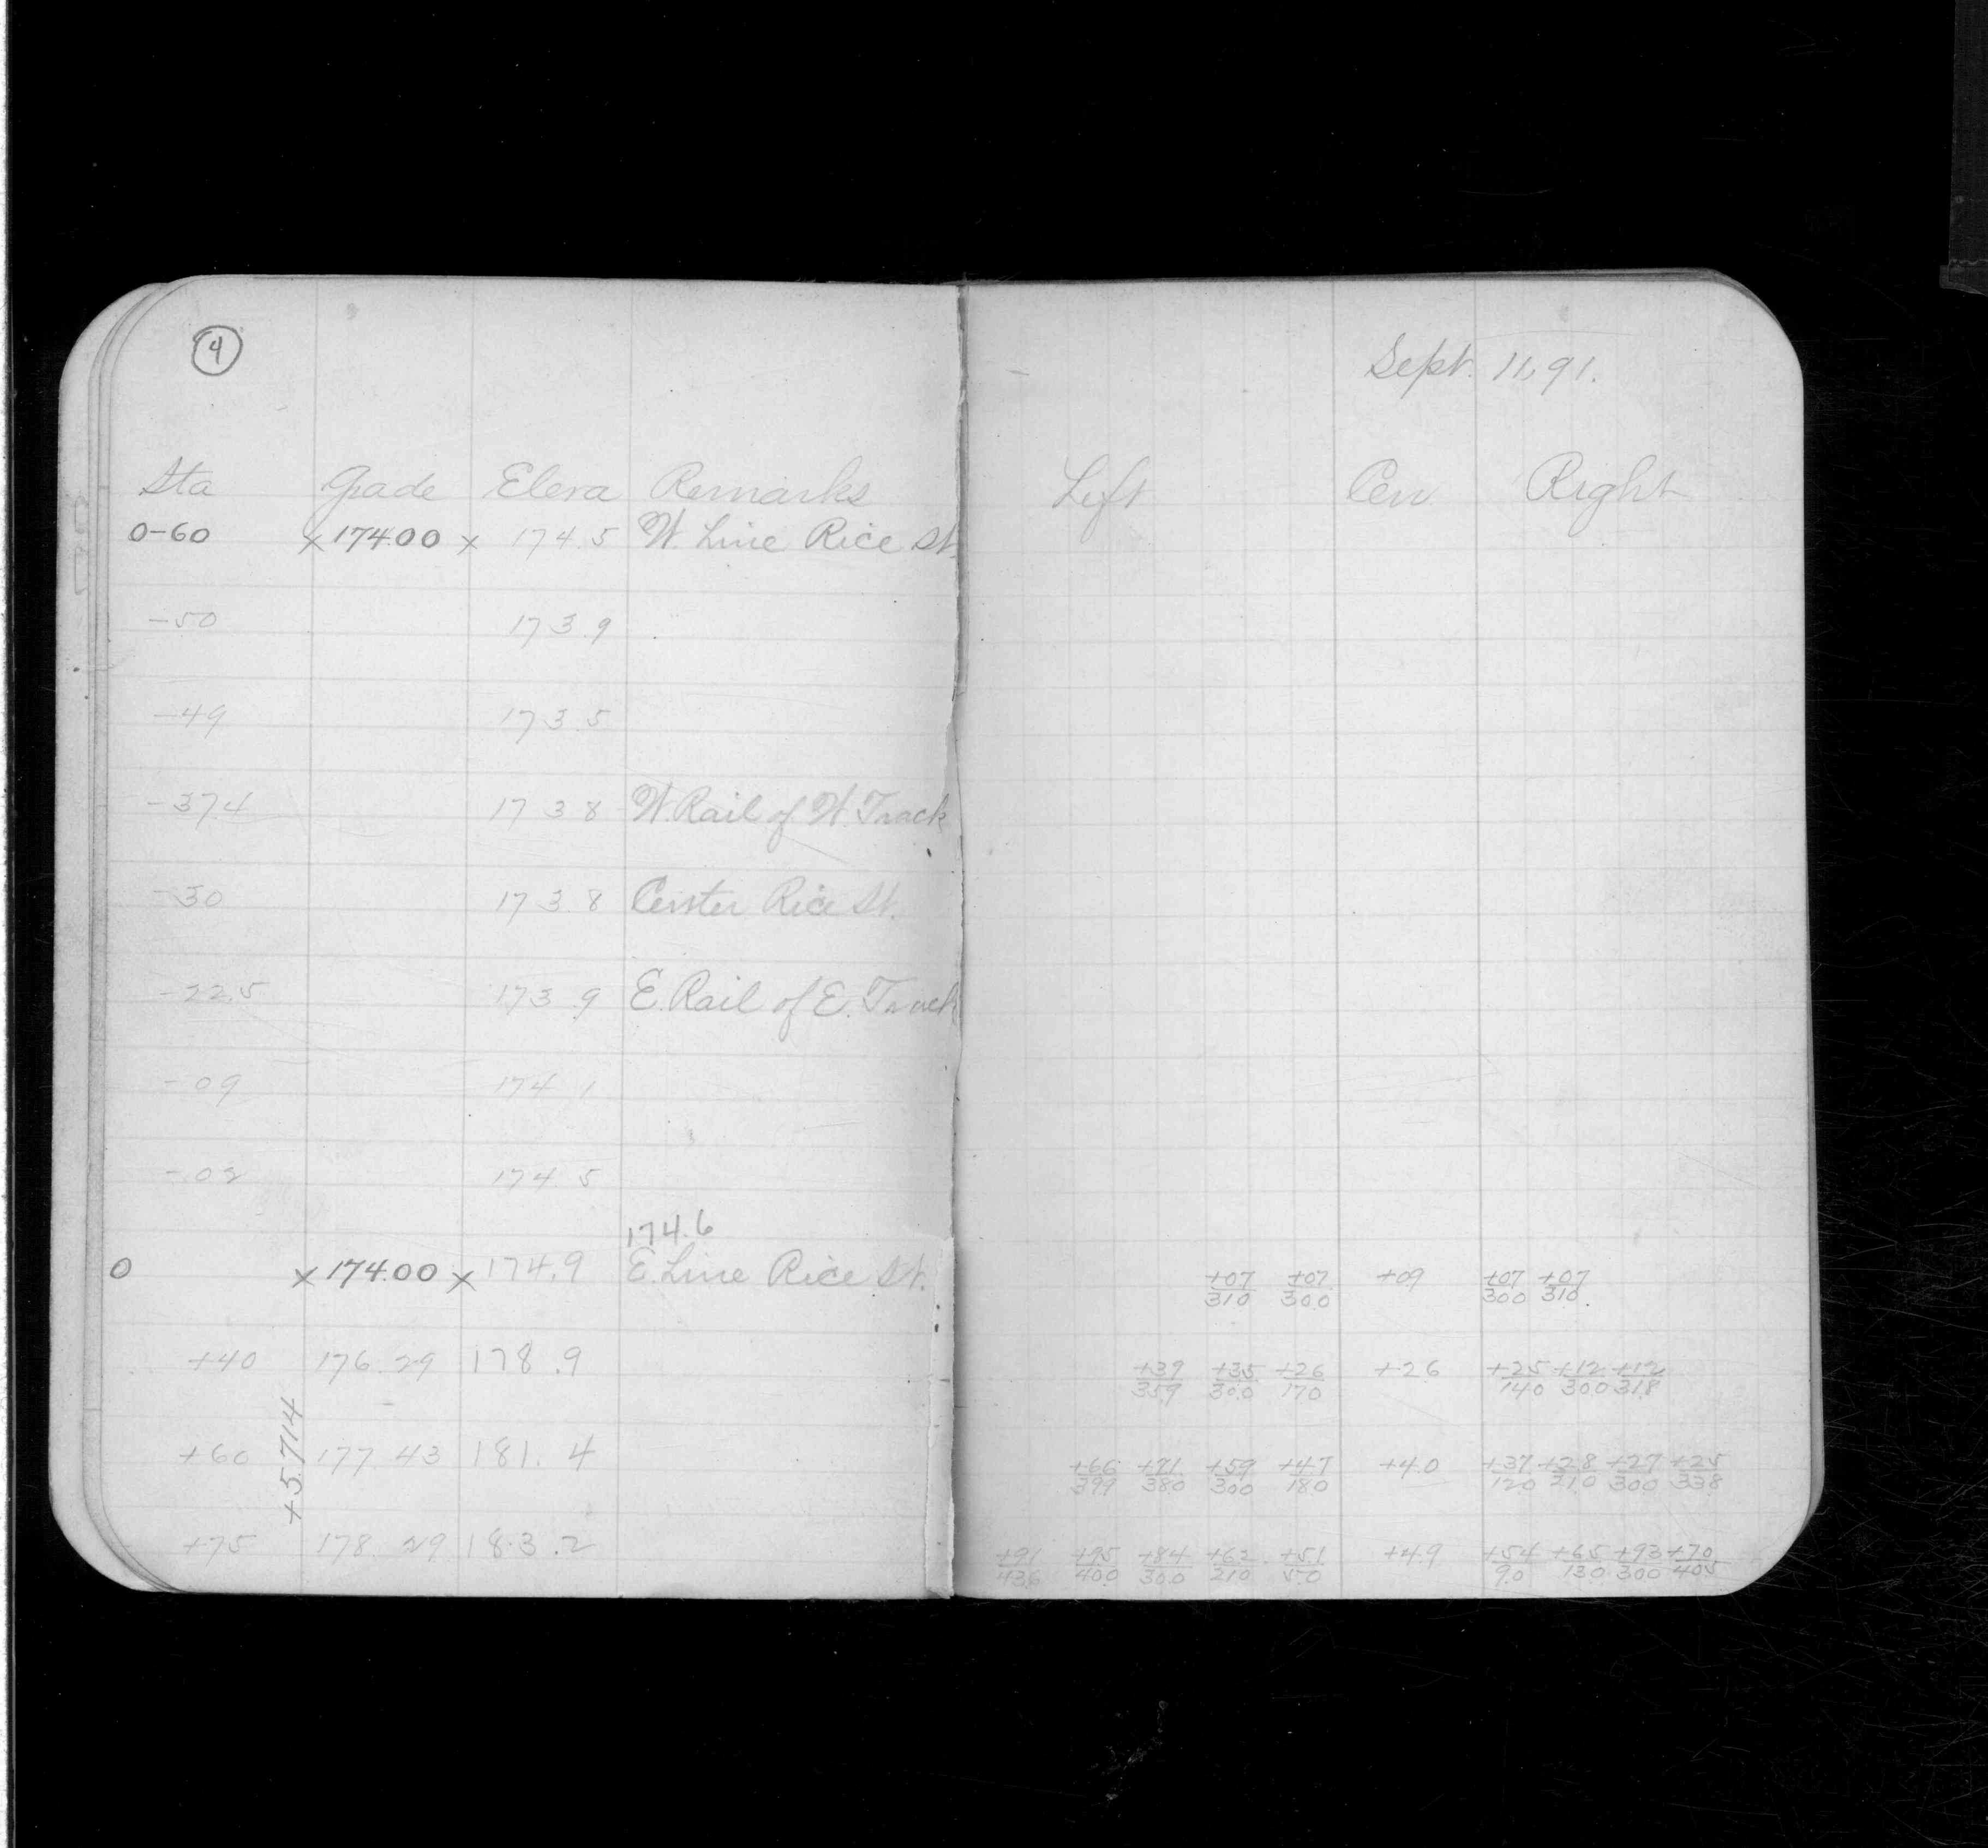 4
Sept. 11, 91.
Sta Grade Eleva Remarks Left Cen Right
0-60 x 174.00 x 174.5 W. Line Rice St.
-50 173.9
-49 173.5
-37.4 173.8 W. Rail of W. Track
-30 173.8 Center Rice St.
-22.5 173.9 E. Rail of E. Track
-09 174.1
-02 174.5
174.6
0 x 174.00 x 174.9 E. Line Rice St. +07/310 +07/300 +09 +07/300 +07/310
+40 176.29 178.9 +39/359 +35/300 +26/170 +26 +25/140 +12/300 +12/318
+5.714
+60 177.43 181.4 +66/399 +71/380 +59/300 +47/180 +4.0 +37/120 +28/210 +27/300 +25/338
+75 178.29 183.2 +91/436 +95/400 +84/300 +62/210 +51/50 +4.9 +54/90 +65/130 +93/300 +70/405